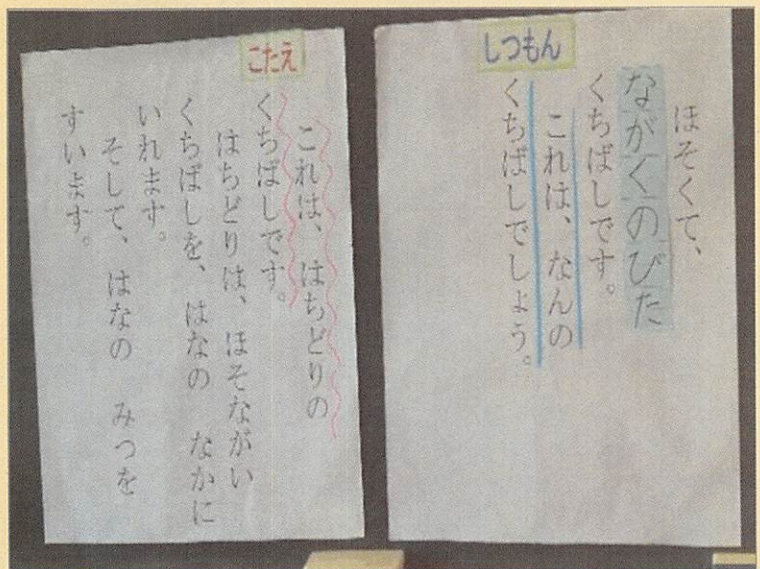 しつもん
ほそくて、
ながくのびた
くちばしです。
これは、なんの
くちばしでしょう。
こたえ
これは、はちどりの
くちばしです。
はちどりは、ほそながい
くちばしを、はなの なかに
いれます。
そして、はなの みつを
すいます。